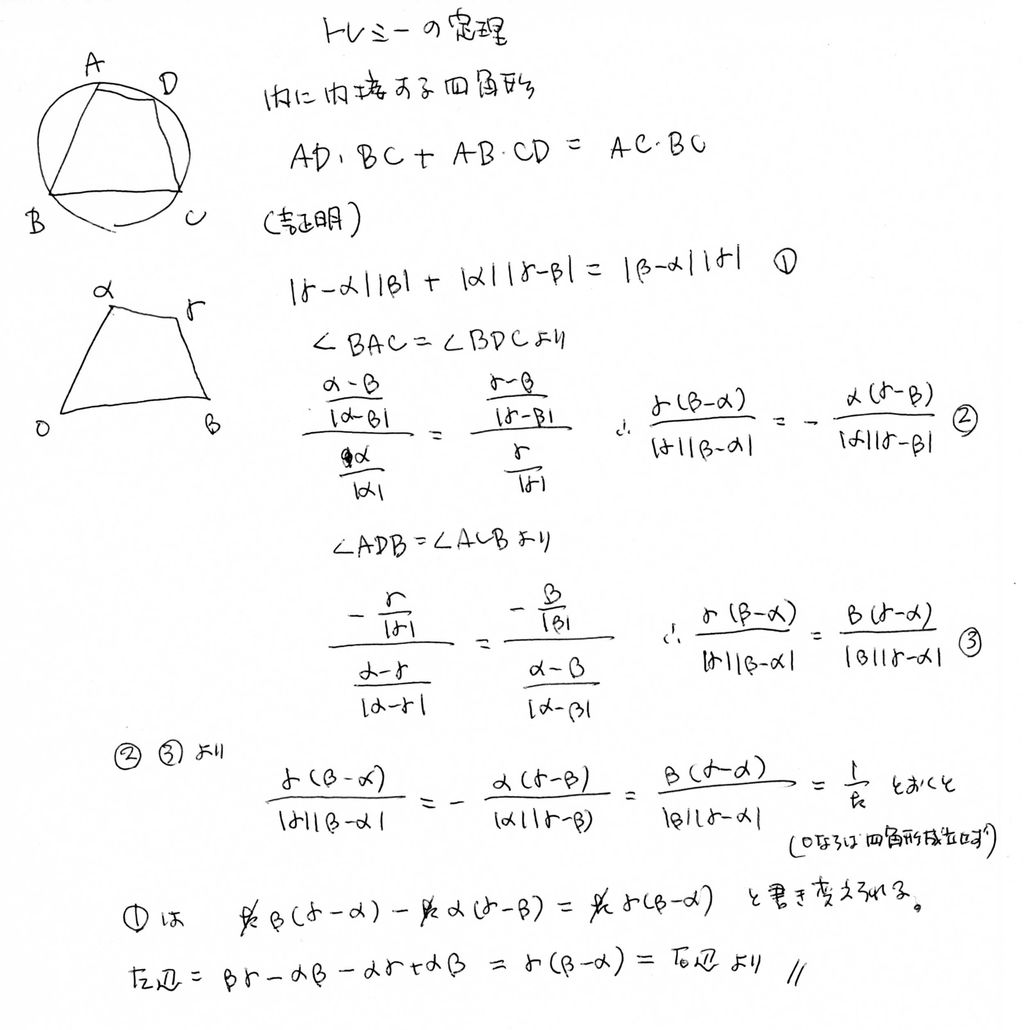 トレミーの定理
A D
B C
円に内接する四角形
AD・BC + AB・CD = AC・BC
(証明)
|γ-α||β| + |α||γ-β| = |β-α||γ| ①
α γ
O B
∠BAC = ∠BDCより
((α-β)/|α-β|)/(α/|α|) = ((γ-β)/|γ-β|)/(γ/|γ|) ∴ γ(β-α)/(|γ||β-α|) = - α(γ-β)/(|α||γ-β|) ②
∠ADB = ∠ACBより
(-γ/|γ|)/((α-γ)/|α-γ|) = (-β/|β|)/((α-β)/|α-β|) ∴ γ(β-α)/(|γ||β-α|) = β(γ-α)/(|β||γ-α|) ③
② ③ より
γ(β-α)/(|γ||β-α|) = - α(γ-β)/(|α||γ-β|) = β(γ-α)/(|β||γ-α|) = 1/k とおくと
(0ならば四角形成立せず)
①は kβ(γ-α) - kα(γ-β) = kγ(β-α) と書き変えられる。
左辺 = βγ-αβ-αγ+αβ = γ(β-α) = 右辺 より //